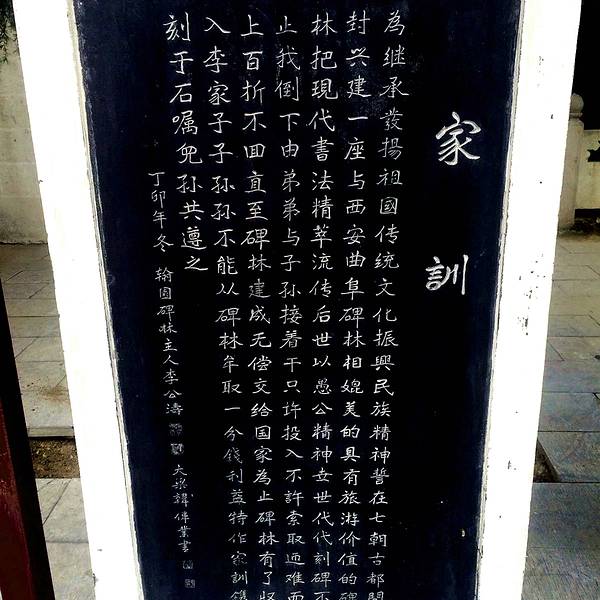 家訓
為继承發揚祖國传统文化振興民族精神誓在七朝古都開
封兴建一座与西安曲阜碑林相媲美的具有旅游价值的碑
林把現代書法精萃流传后世以愚公精神世世代代刻碑不
止我倒下由弟弟与子孙接着干只许投入不許索取迎难而
上百折不回直至碑林建成无偿交给国家為止碑林有了收
入李家子子孙孙不能从碑林牟取一分錢利益特作家訓鐫
刻于石嘱兒孙共遵之
丁卯年冬 翰园碑林主人李公涛 大梁韓傳業書